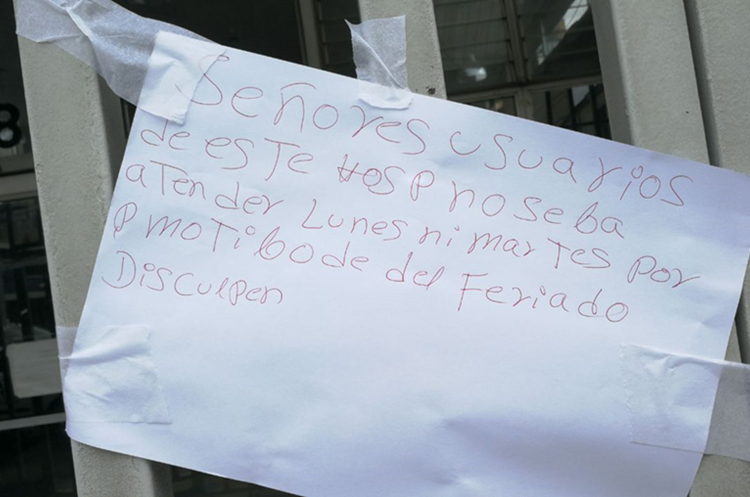 Señores usuarios
de este Hosp no se ba
atender Lunes ni martes por
p motibo de del Feriado
Disculpen
8